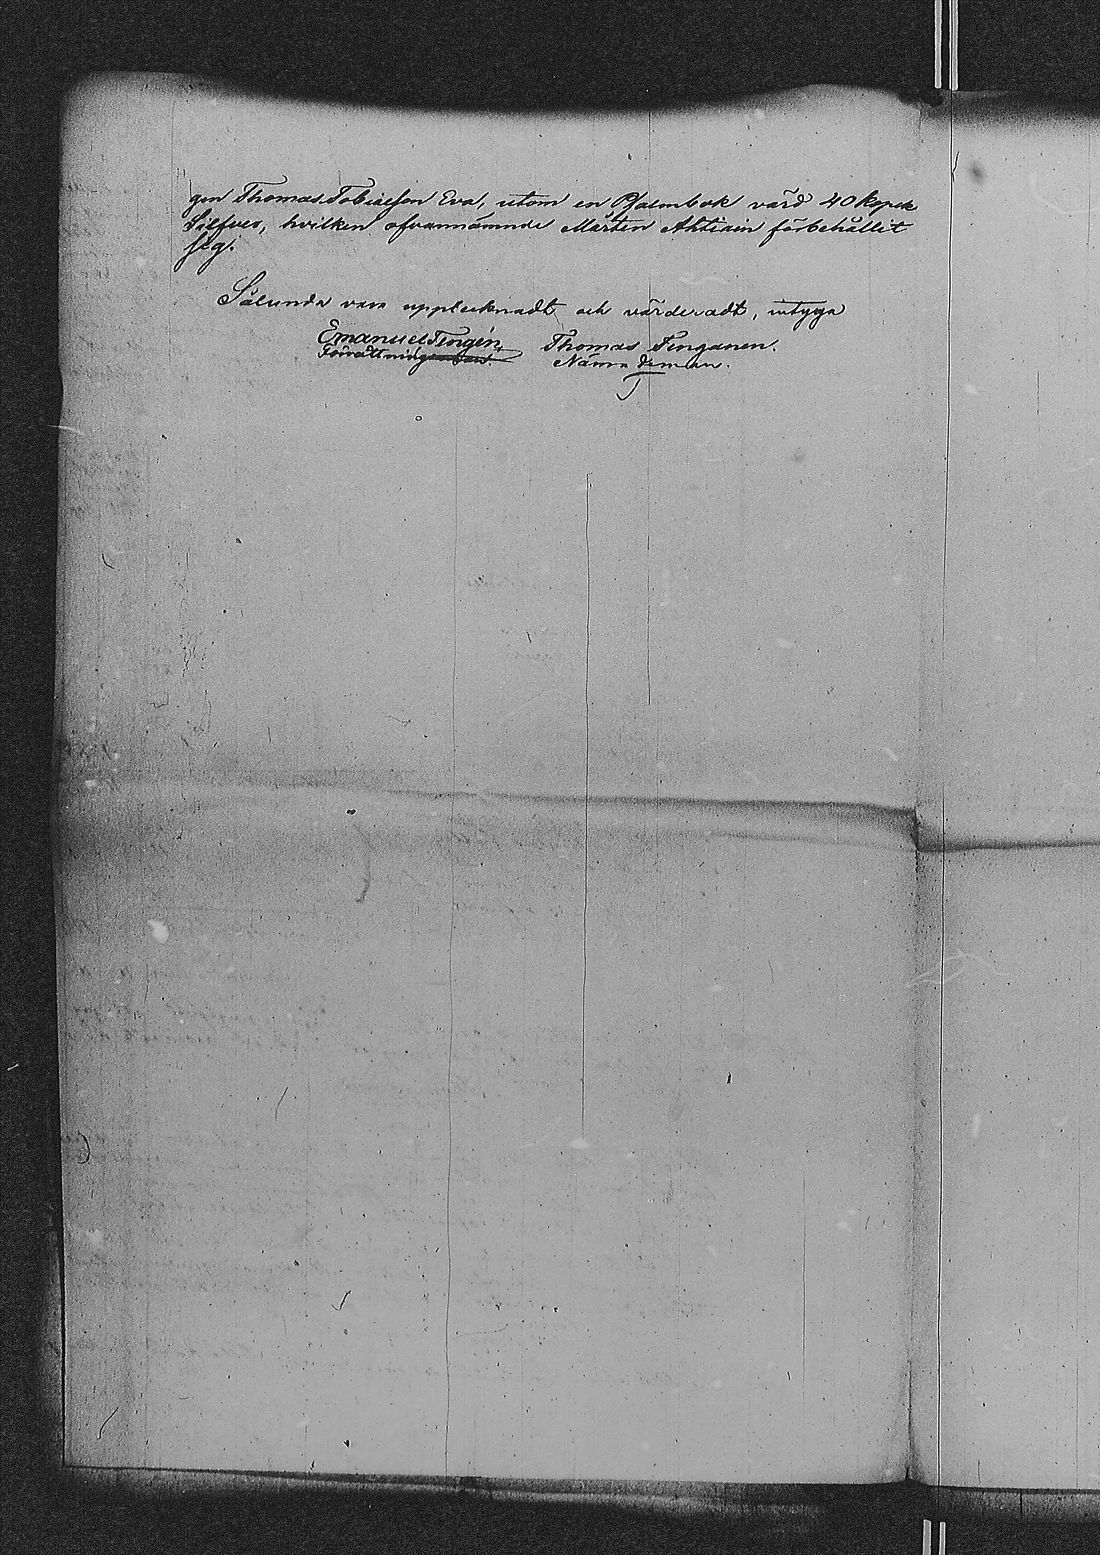 gen Thomas Tobiaeson Eva, utom en Psalmbok värd 40 kopek
Silfver, hvilken ofvannämnde Mårten Ahtiain förbehållit
sig.
Sålunda vara upptecknadt och värderadt, intyga
Emanuel Tengén, Thomas Finganen.
Förrättningsman. Nämndeman.